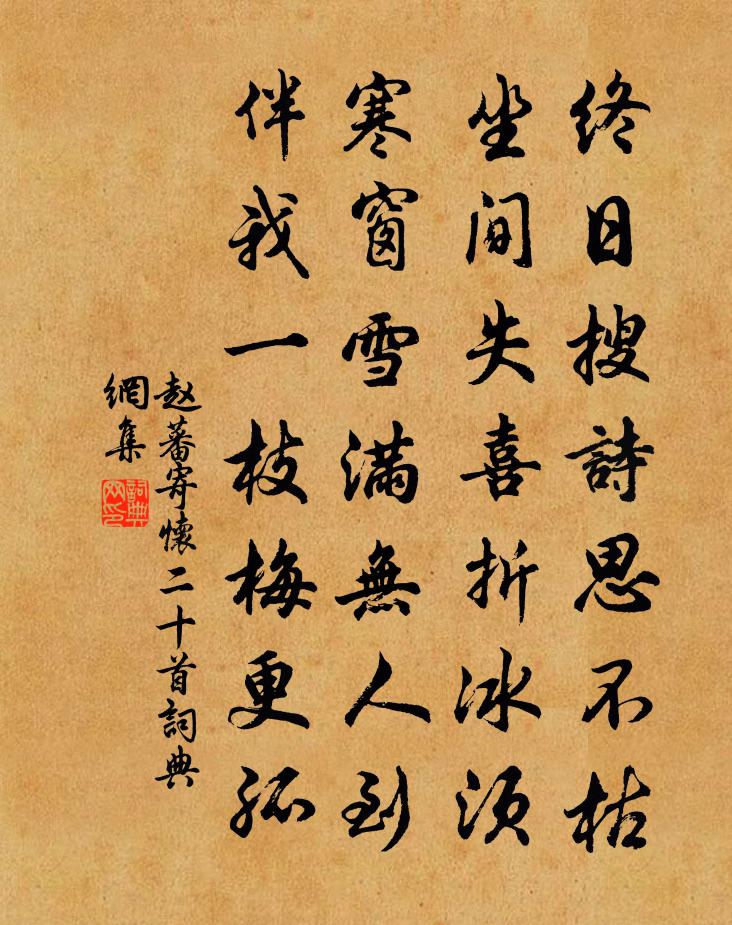 終日搜詩思不枯
坐间失喜折冰須
寒窗雪滿無人到
伴我一枝梅更孤
赵蕃寄懷二十首詞典
網集
詞典
网印